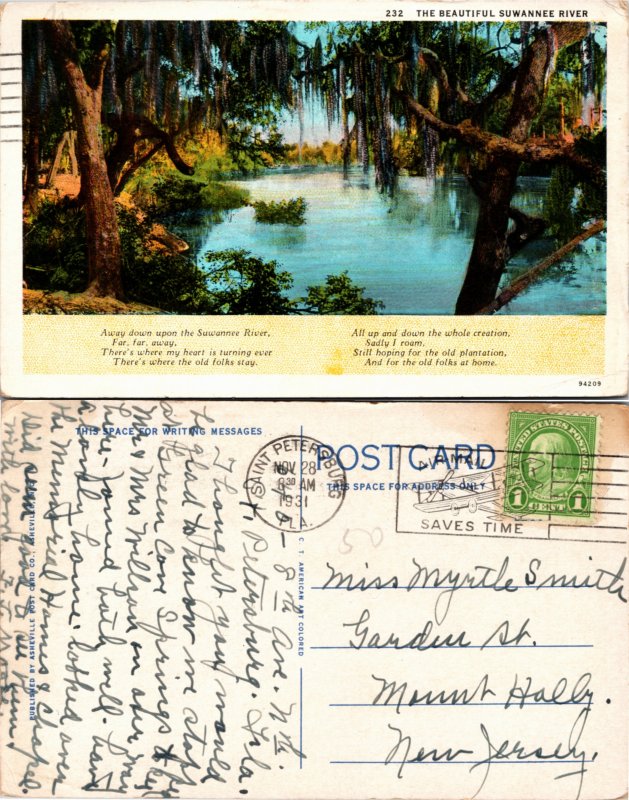 232 THE BEAUTIFUL SUWANNEE RIVER
Away down upon the Suwannee River,
Far, far away,
There's where my heart is turning ever
There's where the old folks stay.
All up and down the whole creation,
Sadly I roam,
Still hoping for the old plantation,
And for the old folks at home.
94209
THIS SPACE FOR WRITING MESSAGES
POST CARD
THIS SPACE FOR ADDRESS ONLY
SAINT PETERSBURG
NOV 28
8 30 AM
1931
FLA.
AIR MAIL
SAVES TIME
UNITED STATES POSTAGE
1 1
CENT
50
8th Ave. N.
St. Petersburg. Fla.
I thought you would
be glad to know we stopped
at Green Cove Springs to see
Mrs & Mr Willson on our way
here - found both well. Have
a lovely home. looked over
the Memorial Homes & chapel.
with love
Miss Myrtle Smith
Garden St.
Mount Holly.
New Jersey.
PUBLISHED BY ASHEVILLE POST CARD CO., ASHEVILLE, N. C.
C. T. AMERICAN ART COLORED